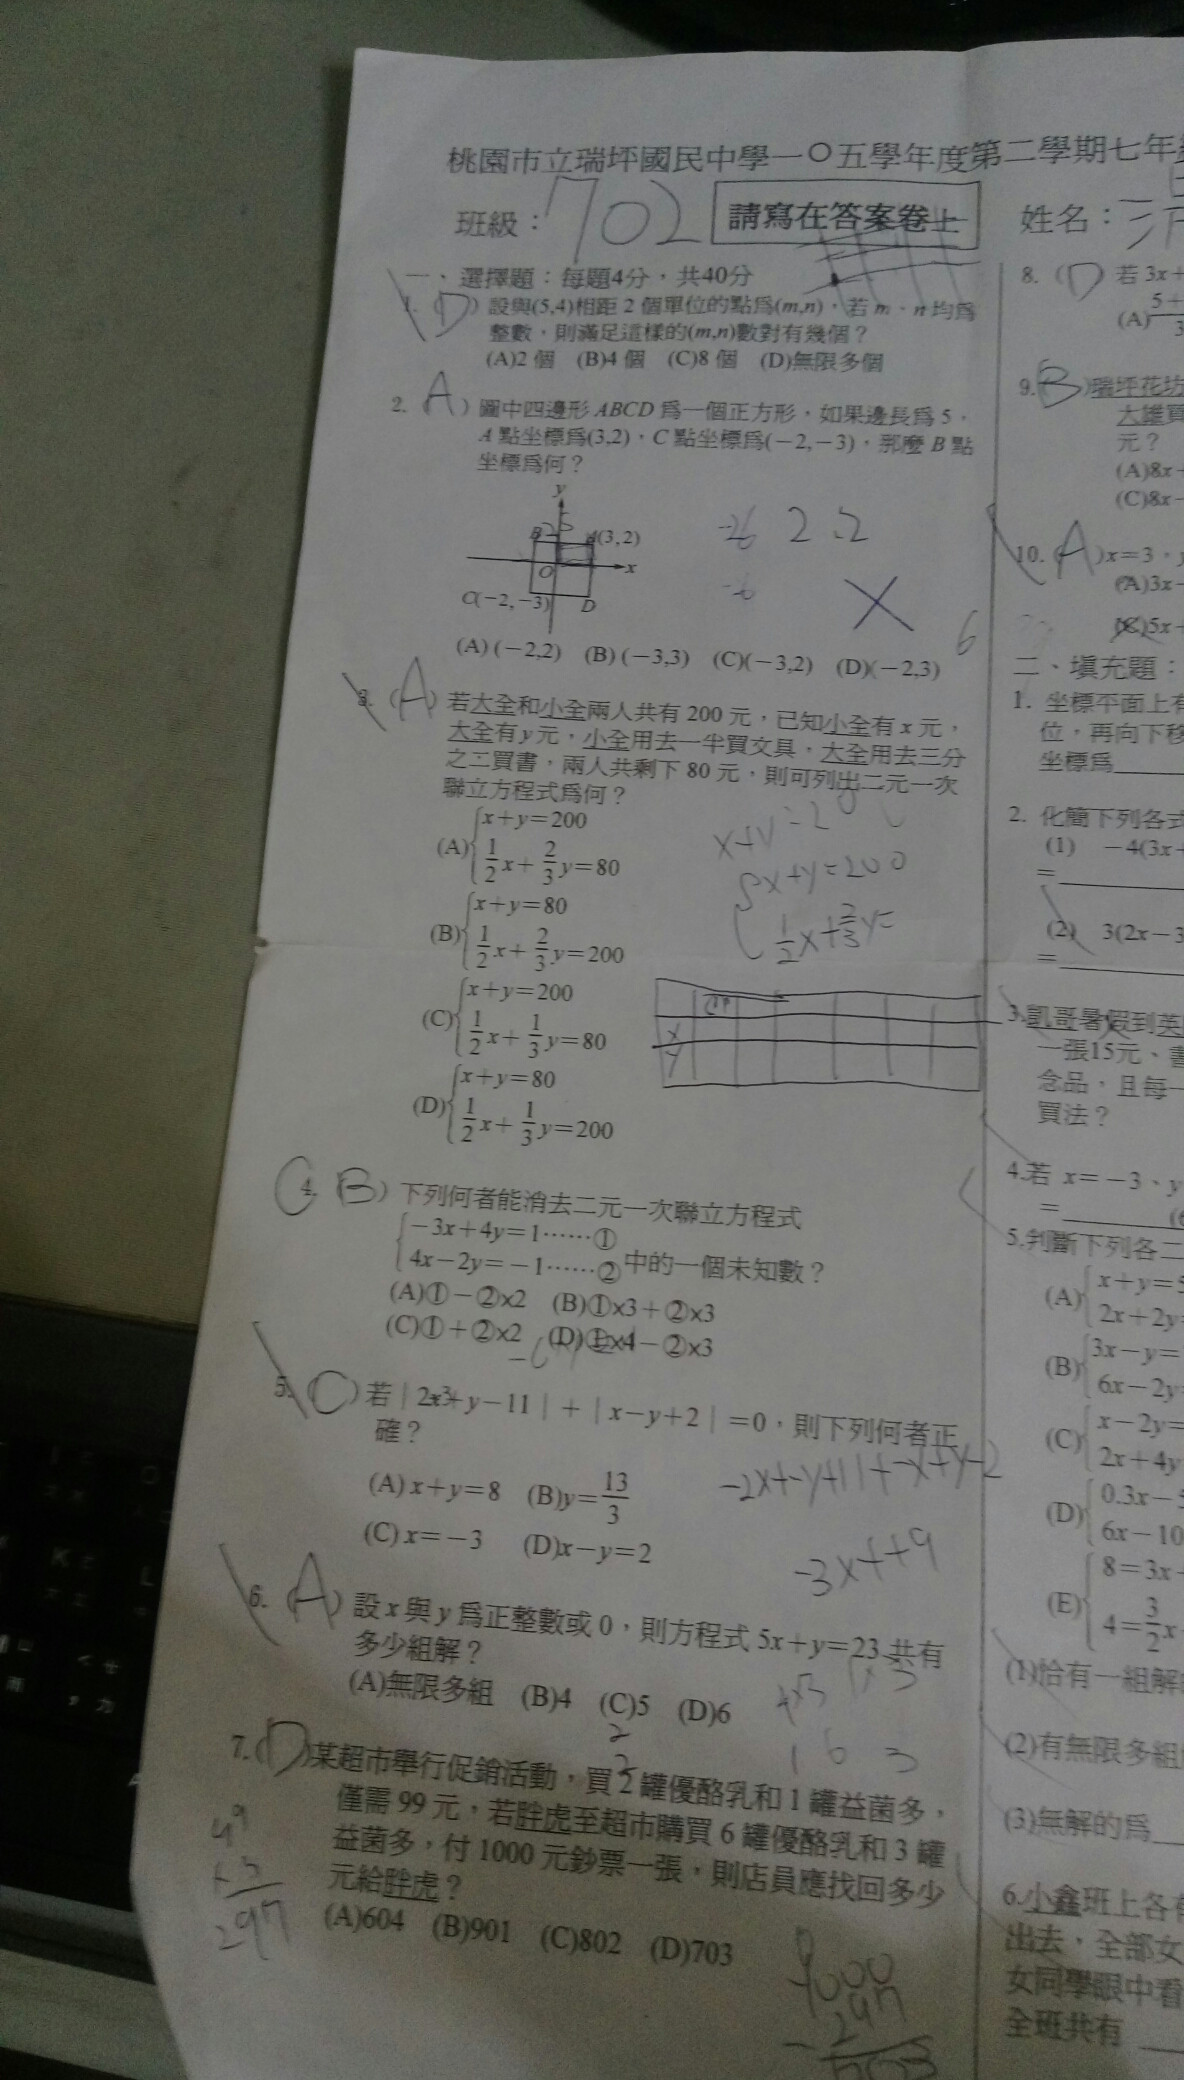 桃園市立瑞坪國民中學一〇五學年度第二學期七年
班級：702 請寫在答案卷上 姓名：
一、選擇題：每題4分，共40分
1. (D) 設與(5,4)相距 2 個單位的點爲(m,n)，若 m、n 均爲
整數，則滿足這樣的(m,n)數對有幾個？
(A)2 個 (B)4 個 (C)8 個 (D)無限多個
2. (A) 圖中四邊形 ABCD 爲一個正方形，如果邊長爲 5，
A 點坐標爲(3,2)，C 點坐標爲(－2,－3)，那麼 B 點
坐標爲何？
y
B A(3,2)
O x
C(－2,－3) D
(A)(－2,2) (B)(－3,3) (C)(－3,2) (D)(－2,3)
3. (A) 若大全和小全兩人共有 200 元，已知小全有 x 元，
大全有y元，小全用去一半買文具，大全用去三分
之二買書，兩人共剩下 80 元，則可列出二元一次
聯立方程式爲何？
(A){x+y=200
1/2x+2/3y=80
(B){x+y=80
1/2x+2/3y=200
(C){x+y=200
1/2x+1/3y=80
(D){x+y=80
1/2x+1/3y=200
x+y=200
1/2x+2/3y=
4. (B) 下列何者能消去二元一次聯立方程式
{－3x+4y=1……①
4x－2y=－1……② 中的一個未知數？
(A)①－②×2 (B)①×3＋②×3
(C)①＋②×2 (D)①×4－②×3
5. (C) 若｜2x+y－11｜+｜x－y+2｜=0，則下列何者正
確？
(A) x+y=8 (B)y=13/3
(C) x=－3 (D)x－y=2
-2x+-y+11+-x+y-2
-3x++9
6. (A) 設 x 與 y 爲正整數或 0，則方程式 5x+y=23 共有
多少組解？
(A)無限多組 (B)4 (C)5 (D)6
1 6 3
7. (D) 某超市舉行促銷活動，買 2 罐優酪乳和 1 罐益菌多，
僅需 99 元，若胖虎至超市購買 6 罐優酪乳和 3 罐
益菌多，付 1000 元鈔票一張，則店員應找回多少
元給胖虎？
(A)604 (B)901 (C)802 (D)703
297
8. (D) 若 3x+
(A)
9. (B) 瑞坪花坊
大雄買
元？
(A)8x
(C)8x
10. (A) x=3，
(A)3x
(C)5x+
二、填充題：
1. 坐標平面上有
位，再向下移
坐標爲
2. 化簡下列各式
(1) －4(3x+
=
(2) 3(2x－3
=
3.凱哥暑假到英
一張15元、書
念品，且每一
買法？
4.若 x=－3、y
=
5.判斷下列各二
(A){x+y=5
2x+2y
(B){3x－y=
6x－2y
(C){x－2y=
2x+4y
(D){0.3x－5
6x－10
(E){8=3x
4=3/2x
(1)恰有一組解
(2)有無限多組
(3)無解的爲
6.小鑫班上各有
出去，全部女
女同學眼中看
全班共有